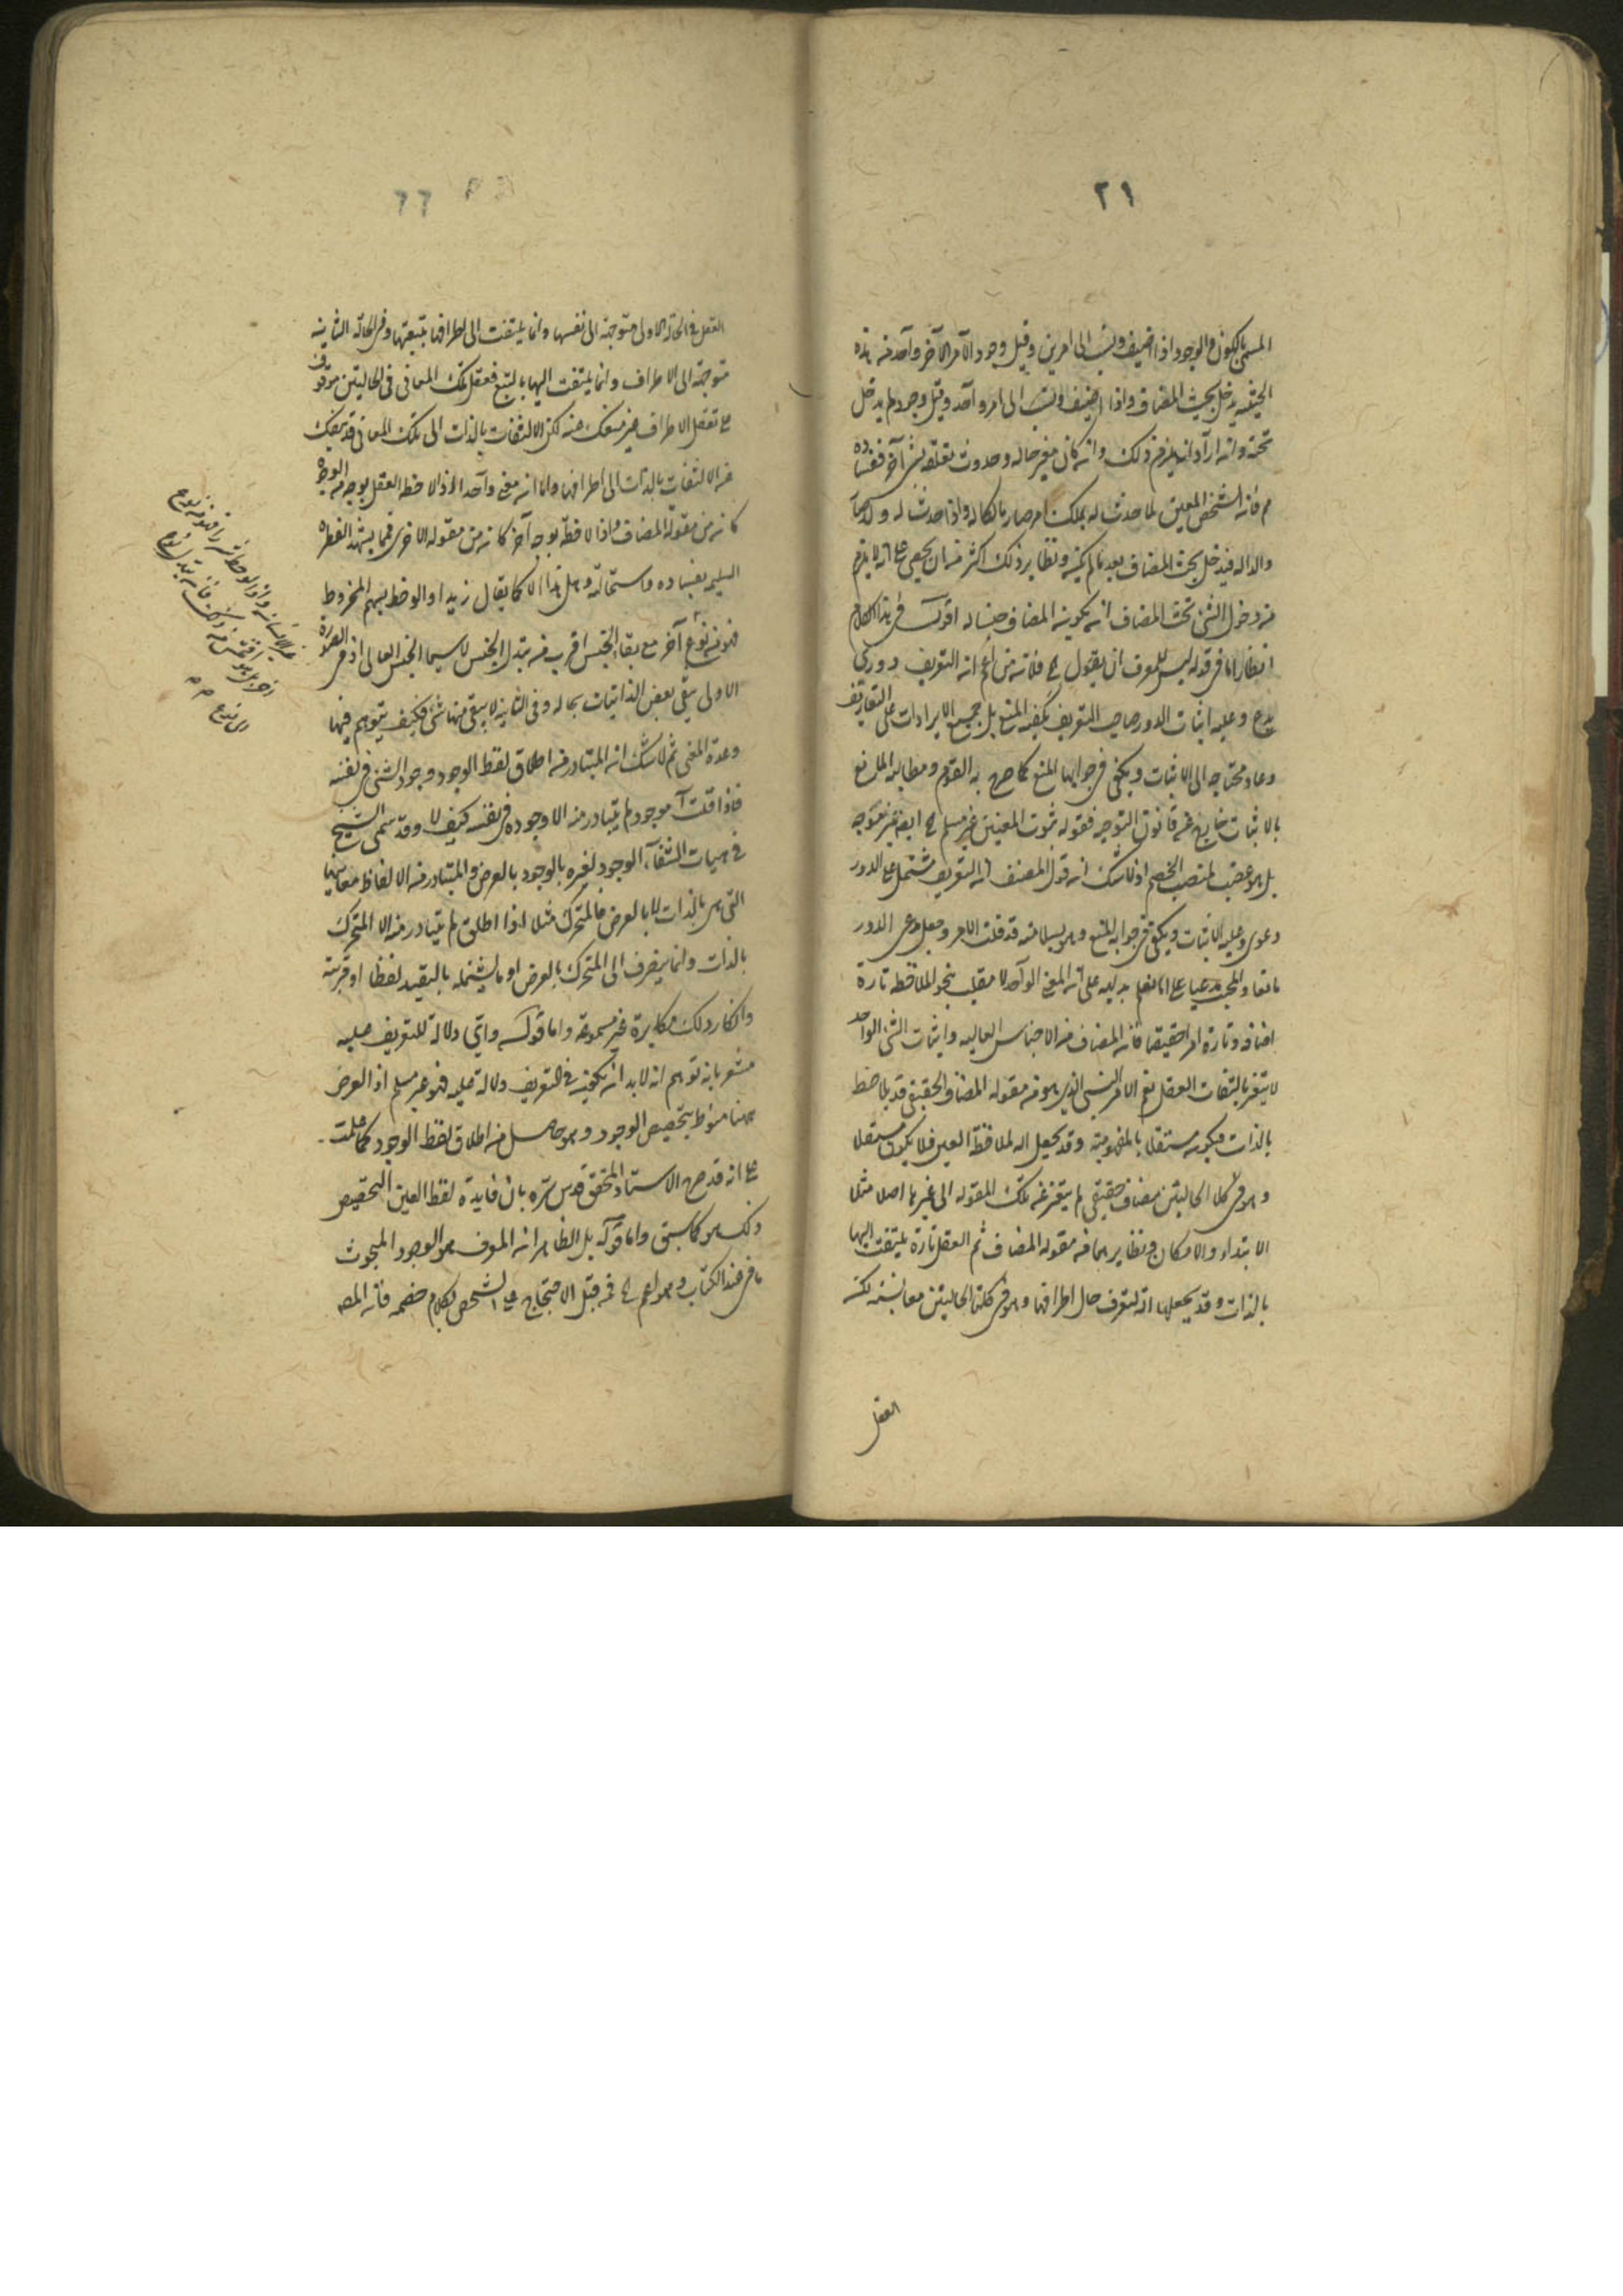 ٢١
المسمى بالكون و الوجود اذا اضيف ونسب الى امرين وقيل وجود الامر الآخر وآحد منه بهذه
الحيثية يدخل تحت المضاف واذا اضيف ونسب الى امر وآحد وقيل وجوده لم يدخل
تحته وان اراد انه يلزم ذلك وان كان مغير حاله وحدوث تعلقه بشئ آخر ففساده
فان الشخص المعين لما حدث له بملك امر صار مالكا له واذا حدث له ولد صار
والدا له فيدخل تحت المضاف بعد ما لم يكنه ونظاير ذلك اكثر من ان يحصى على انه لا يلزم
من دخول الشئ تحت المضاف ان يكون المضاف جنسا له اقول فى هذا الكلام
انظار اما فى قوله ليس للمعرف ان يقول فلانه من اعم ان التعريف دورى
مدع وعليه اثبات الدور صاحب التعريف يكفيه المنع بل جميع الايرادات على التعاريف
دعاو محتاجه الى الاثبات ويكفى فى جوابها المنع كما صرح به القوم ومطالبه المانع
بالاثبات خارج عن قانون التوجيه فقوله ثبوت المعنيين غير مسلم ايضا غير متوجه
بل هو غصب لمنصب الخصم اذ لا شك ان قول المصنف ان التعريف مشتمل على الدور
دعوى وعليه الاثبات ويكفى فى جوابه المنع وهو بسلامته قد قلب الامر وجعل مدعى الدور
مانعا والمجيب مدعيا على انا نعلم بديهة على ان المعنى الواحد لا ينقلب بنحو الملاحظه تارة
اضافه وتارة امرا حقيقيا فان المضاف من الاجناس العاليه واثبات الشئ الواحد
لا يتغير بالتفات العقل نعم الامر النسبى الذى هو من مقوله المضاف الحقيقى قد يلاحظ
بالذات فيكون مستقلا بالمفهوميه وقد يجعل آلة لملاحظة الغير فلا يكون مستقلا
وهو فى كلا الحالتين مضاف حقيقى لم يتغير عن تلك المقوله الى غيرها اصلا مثلا
الابتداء والامكان ونظايرهما من مقوله المضاف ثم العقل تارة يلتفت اليها
بالذات وقد يجعلها آلة لتعرف حال اطرافها وهو فى كلتا الحالتين معا نسبة لكنه
العقل
٦٦
العقل فى الحالة الاولى متوجه الى نفسها وانما يلتفت الى اطرافها بتبعيتها وفى الحالة الثانيه
متوجه الى الاطراف وانما يلتفت اليها بالتبع فعقل تلك المعانى فى الحالتين موقوف
على تعقل الاطراف غير منفك عنه لكن الالتفات بالذات الى تلك المعانى قد ينفك
عن الالتفات بالذات الى اطرافها واما ان معنى وآحدا اذا لاحظه العقل بوجه من الوجوه
كان من مقولة المضاف واذا لاحظه بوجه آخر كان من مقوله الاخرى فمما يشهد الفطرة
السليمه بفساده واستحالته وهل هذا الا كما يقال زيد اذا لوحظ بسهم المخروط
فهو من نوع آخر مع بقاء الجنس اقرب من تبدل الجنس لا سيما الجنس العالى اذ فى الصورة
الاولى يبقى بعض الذاتيات بحاله وفى الثانية لا يبقى منها شئ فكيف يتوهم فيها
وحدة المعنى ثم لا شك ان المتبادر من اطلاق لفظ الوجود وجود الشئ فى نفسه
فاذا قلت آ موجود لم يتبادر منه الا وجوده فى نفسه كيف لا وقد سمى الشيخ
فى الهيات الشفآء الوجود لغيره بالوجود بالعرض والمتبادر من الالفاظ معانيها
التى هى بالذات لا بالعرض فالمتحرك مثلا اذا اطلق لم يتبادر منه الا المتحرك
بالذات وانما ينصرف الى المتحرك بالعرض او ما يشمله بالتقييد لفظا او قرينة
وانكار ذلك مكابرة غير مسموعة واما قوله واتى دلالة للتعريف عليه
مشعر بانه توهم انه لابد ان يكون فى التعريف دلالة عليه فهو غير مسلم اذ الغرض
ههنا منوط بتخصيص الوجود وهو حاصل من اطلاق لفظ الوجود كما علمت
على انه قد صرح الاستاد المحقق قدس سره بان فايدة لفظ العين التخصيص
وذلك هو كما سبق واما قوله بل الظاهر ان المعرف هو الوجود المبحوث
ما فى هذا الكتاب وهو اعم فمن قبل الاحتجاج على الشخص بكلام خصمه فان المص